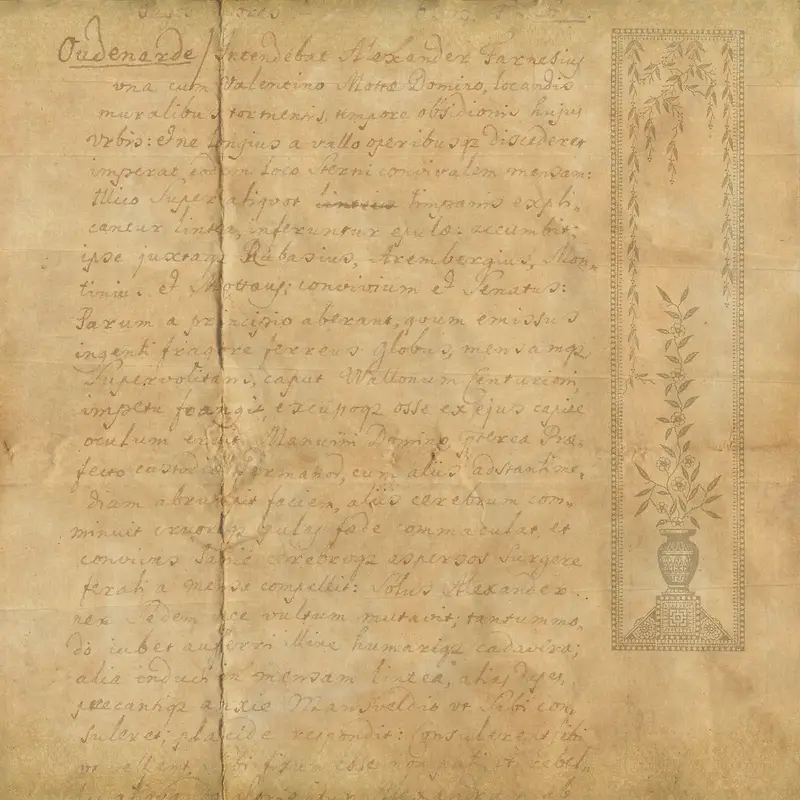 Oudenarde / Intendebat Alexander Farnesius
una cum Valentino Mottæ Domino, locandis
muralibus tormentis, tempore obsidionis hujus
Urbis: et ne longius a vallo operibusqz discederet
imperat eodem loco Sterni convivalem mensam:
Illico Super aliquot timpanis expli-
cantur lintea, inferuntur epulæ: accumbit
ipse juxtaqz Rubasius, Arembergius, Mon-
tinius et Mottæus; convivium et Senatus:
Parum a principio aberant, quum emissus
ingenti fragore ferreus globus, mensamqz
Supervolitans, caput Wallonum Centurioni,
impetu frangit, excussoqz osse ex ejus capite
oculum Manuvii Domino, præterea Præ-
fecto custodiæ Germanor, cum aliis adstanti me-
diam abrumpit faciem, aliis cerebrum com-
minuit cruore gulas fæde commaculat, et
convivas Sanie cerebroqz aspersos Surgere
a mensa compellit: Solus Alexander
nec Sedem nec vultum mutavit; tantummo-
do iubet auferri hinc humariqz cadavera;
alia induci in mensam lintea, alias dapes,
precantiqz anxie Mansveldio ut Sibi con-
suleret; placide respondit: Consulerent sibi
ut